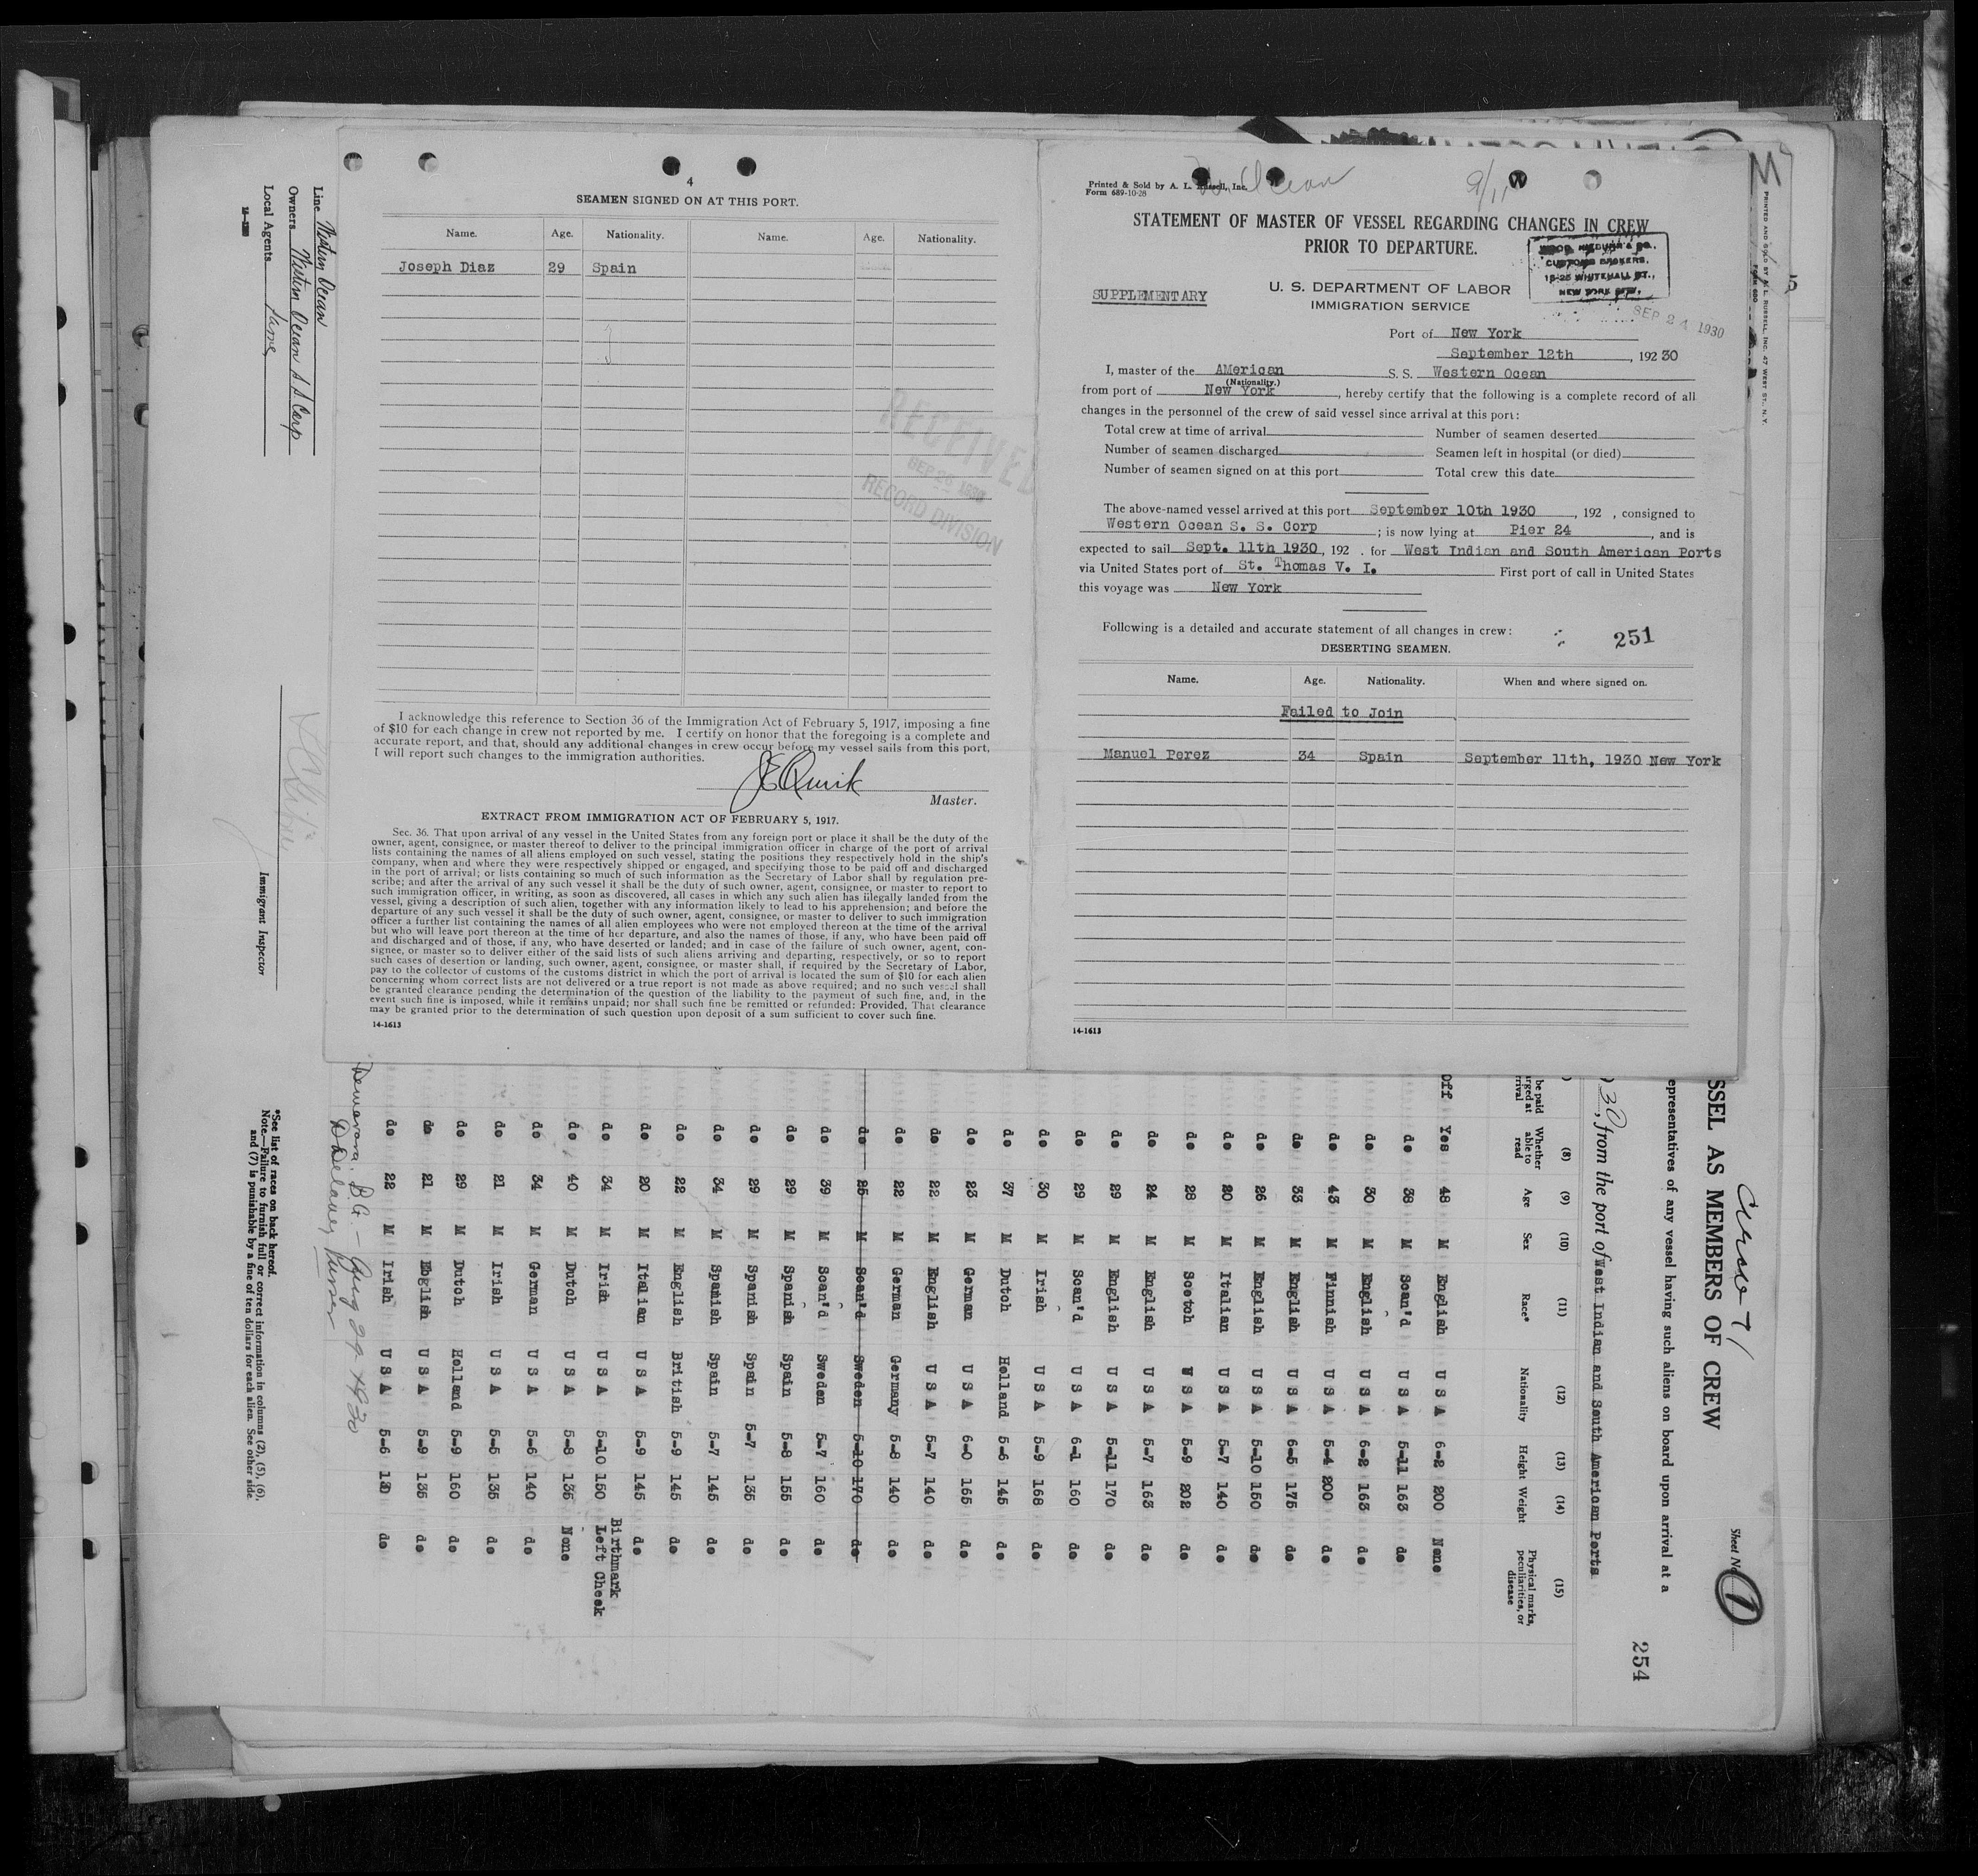 4
SEAMEN SIGNED ON AT THIS PORT.
Name. Age. Nationality. Name. Age. Nationality.
Joseph Diaz 29 Spain
RECEIVED
SEP 26 1930
RECORD DIVISION
I acknowledge this reference to Section 36 of the Immigration Act of February 5, 1917, imposing a fine
of $10 for each change in crew not reported by me. I certify on honor that the foregoing is a complete and
accurate report, and that, should any additional changes in crew occur before my vessel sails from this port,
I will report such changes to the immigration authorities.
JE Quirk
Master.
EXTRACT FROM IMMIGRATION ACT OF FEBRUARY 5, 1917.
Sec. 36. That upon arrival of any vessel in the United States from any foreign port or place it shall be the duty of the
owner, agent, consignee, or master thereof to deliver to the principal immigration officer in charge of the port of arrival
lists containing the names of all aliens employed on such vessel, stating the positions they respectively hold in the ship's
company, when and where they were respectively shipped or engaged, and specifying those to be paid off and discharged
in the port of arrival; or lists containing so much of such information as the Secretary of Labor shall by regulation pre-
scribe; and after the arrival of any such vessel it shall be the duty of such owner, agent, consignee, or master to report to
such immigration officer, in writing, as soon as discovered, all cases in which any such alien has illegally landed from the
vessel, giving a description of such alien, together with any information likely to lead to his apprehension; and before the
departure of any such vessel it shall be the duty of such owner, agent, consignee, or master to deliver to such immigration
officer a further list containing the names of all alien employees who were not employed thereon at the time of the arrival
but who will leave port thereon at the time of her departure, and also the names of those, if any, who have been paid off
and discharged and of those, if any, who have deserted or landed; and in case of the failure of such owner, agent, con-
signee, or master so to deliver either of the said lists of such aliens arriving and departing, respectively, or so to report
such cases of desertion or landing, such owner, agent, consignee, or master shall, if required by the Secretary of Labor,
pay to the collector of customs of the customs district in which the port of arrival is located the sum of $10 for each alien
concerning whom correct lists are not delivered or a true report is not made as above required; and no such vessel shall
be granted clearance pending the determination of the question of the liability to the payment of such fine, and, in the
event such fine is imposed, while it remains unpaid; nor shall such fine be remitted or refunded: Provided, That clearance
may be granted prior to the determination of such question upon deposit of a sum sufficient to cover such fine.
14-1613
Printed & Sold by A. L. Russell, Inc.
Form 689-10-28
W. Ocean
9/11
W
STATEMENT OF MASTER OF VESSEL REGARDING CHANGES IN CREW
PRIOR TO DEPARTURE.
CUSTOMS BROKERS,
WHITEHALL ST.,
NEW YORK CITY.
SUPPLEMENTARY
U. S. DEPARTMENT OF LABOR
IMMIGRATION SERVICE
SEP 24 1930
Port of New York
September 12th, 192 30
I, master of the AMerican S. S. Western Ocean
(Nationality.)
from port of New York, hereby certify that the following is a complete record of all
changes in the personnel of the crew of said vessel since arrival at this port:
Total crew at time of arrival Number of seamen deserted
Number of seamen discharged Seamen left in hospital (or died)
Number of seamen signed on at this port Total crew this date
The above-named vessel arrived at this port September 10th 1930, 192 , consigned to
Western Ocean S. S. Corp ; is now lying at Pier 24, and is
expected to sail Sept. 11th 1930, 192 . for West Indian and South American Ports
via United States port of St. Thomas V. I. First port of call in United States
this voyage was New York
Following is a detailed and accurate statement of all changes in crew:
251
DESERTING SEAMEN.
Name. Age. Nationality. When and where signed on.
Failed to Join
Manuel Perez 34 Spain September 11th, 1930 New York
14-1613
PRINTED AND SOLD BY A. L. RUSSELL, INC. 47 WEST ST., N. Y.
FORM 680
SSEL AS MEMBERS OF CREW
Sheet No. 1
254
epresentatives of any vessel having such aliens on board upon arrival at a
30, from the port of West Indian and South American Ports
(8) (9) (10) (11) (12) (13) (14) (15)
be paid
Whether able to read Age Sex Race* Nationality Height Weight Physical marks, peculiarities, or disease
Off Yes 48 M English U S A 6-2 200 None
do 38 M Scan'd U S A 5-11 163 do
do 30 M English U S A 6-2 163 do
do 43 M Finnish U S A 5-4 200 do
do 33 M English U S A 6-5 175 do
do 26 M English U S A 5-10 150 do
do 20 M Italian U S A 5-7 140 do
do 28 M Scotch U S A 5-9 202 do
do 24 M English U S A 5-7 163 do
do 29 M English U S A 5-11 170 do
do 29 M Scan'd U S A 6-1 160 do
do 30 M Irish U S A 5-9 168 do
do 37 M Dutch Holland 5-6 145 do
do 23 M German U S A 6-0 165 do
do 22 M English U S A 5-7 140 do
do 22 M German Germany 5-8 140 do
do 25 M Scan'd Sweden 5-10 170 do
do 39 M Scan'd Sweden 5-7 160 do
do 29 M Spanish Spain 5-8 155 do
do 29 M Spanish Spain 5-7 135 do
do 34 M Spanish Spain 5-7 145 do
do 22 M English British 5-9 145 do
do 20 M Italian U S A 5-9 145 do
do 34 M Irish U S A 5-10 150 Birthmark Left Cheek
do 40 M Dutch U S A 5-8 135 None
do 34 M German U S A 5-6 140 do
do 21 M Irish U S A 5-5 135 do
do 29 M Dutch Holland 5-9 160 do
do 21 M English U S A 5-9 135 do
do 22 M Irish U S A 5-6 130 do
Demarara B.G. - Aug 29 1930
Line Western Ocean
Owners Western Ocean S S Corp
Local Agents Same
Immigrant Inspector
*See list of races on back hereof.
Note.—Failure to furnish full or correct information in columns (2), (5), (6),
and (7) is punishable by a fine of ten dollars for each alien. See other side.